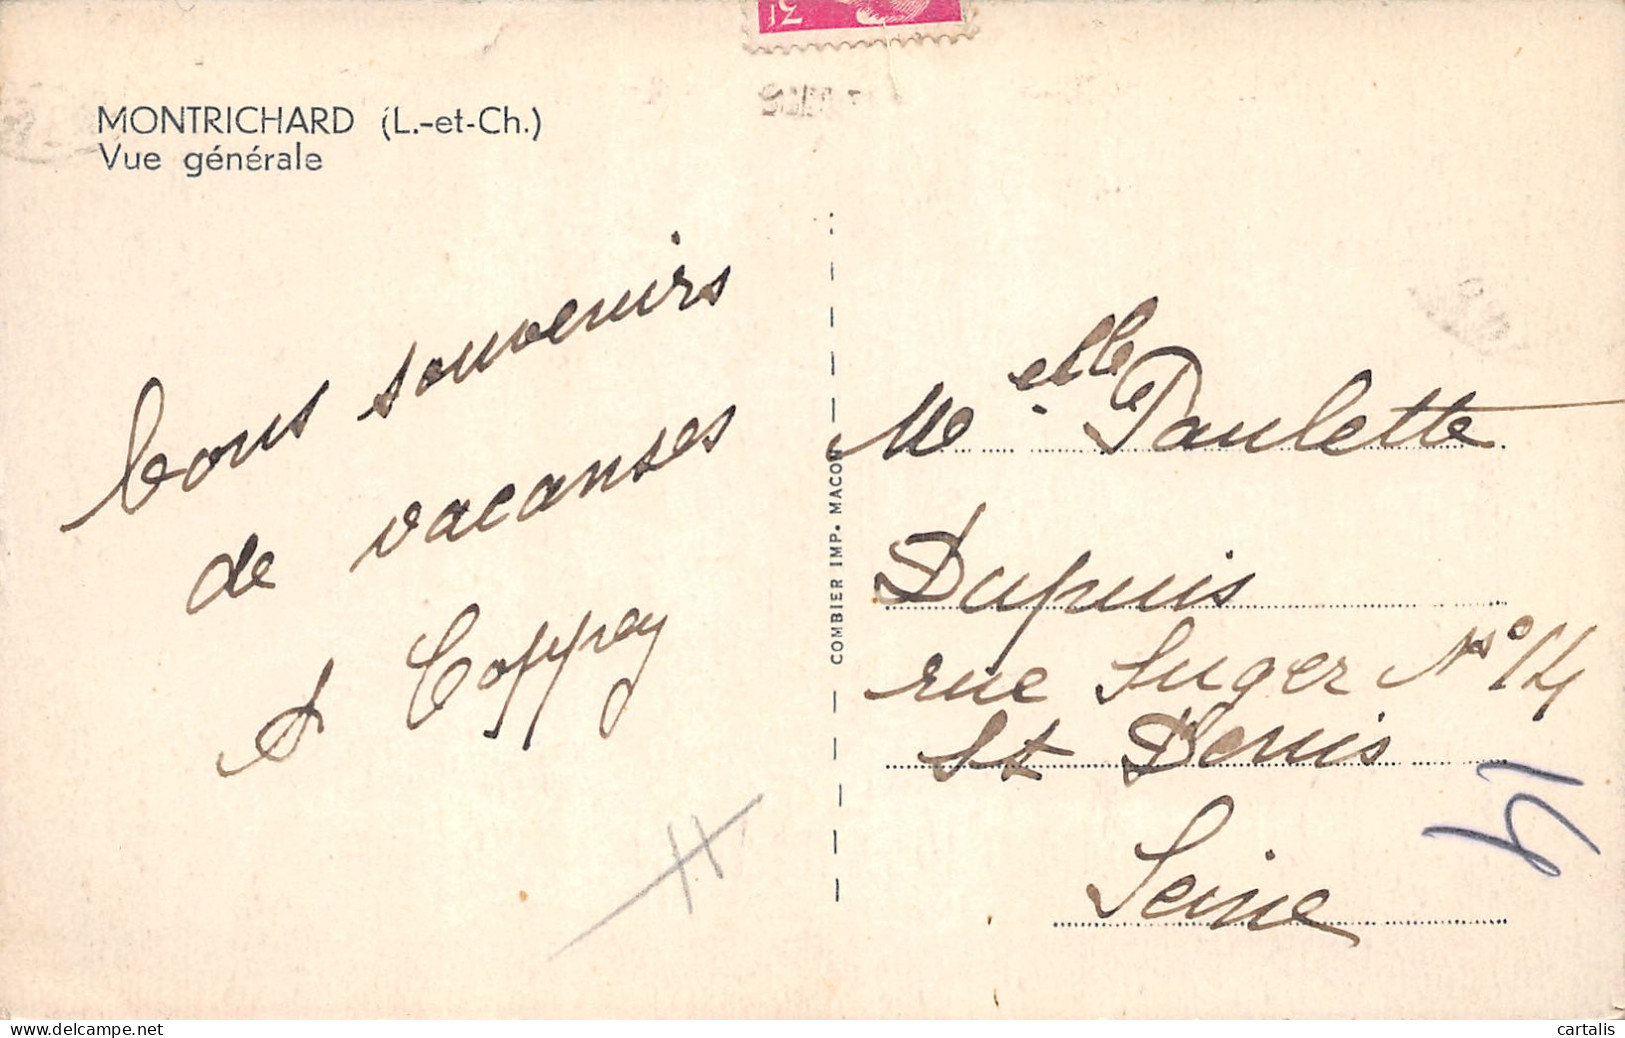 3f
MONTRICHARD (L.-et-Ch.)
Vue générale
bons souvenirs
de vacanses
A Coppey
COMBIER IMP. MACON
Melle Paulette
Dupuis
rue Suger No 14
St Denis
Seine
14
delcampe.net
cartalis